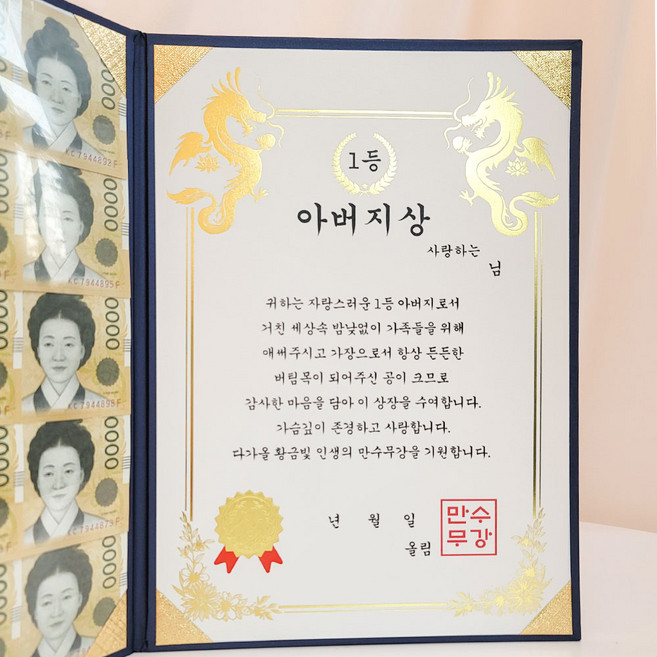 1등
아버지상
사랑하는
님
귀하는 자랑스러운 1등 아버지로서
거친 세상속 밤낮없이 가족들을 위해
애써주시고 가장으로서 항상 든든한
버팀목이 되어주신 공이 크므로
감사한 마음을 담아 이 상장을 수여합니다.
가슴깊이 존경하고 사랑합니다.
다가올 황금빛 인생의 만수무강을 기원합니다.
년 월 일
올림
만수
무강
0000
KC7944892F
0000
KC7944895F
0000
KC7944898F
0000
KC7944879F
0000